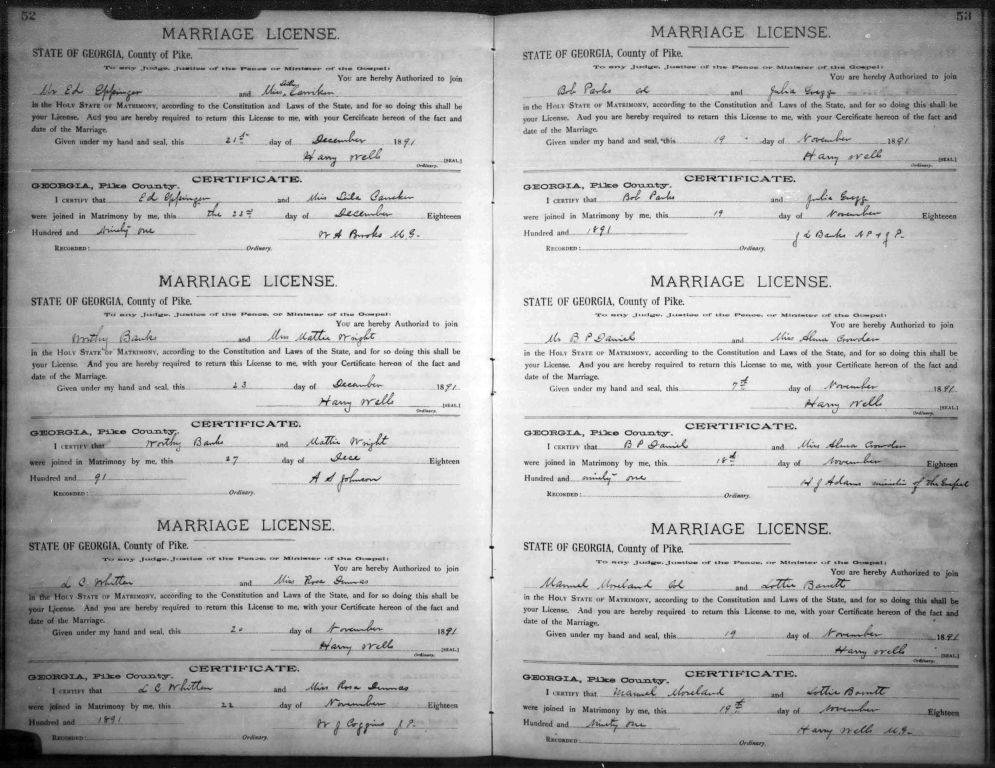 52
MARRIAGE LICENSE.
STATE OF GEORGIA, County of Pike.
To any Judge, Justice of the Peace or Minister of the Gospel:
You are hereby Authorized to join
Mr Ed Eppinger and Miss
in the Holy State of Matrimony, according to the Constitution and Laws of the State, and for so doing this shall be
your License. And you are hereby required to return this License to me, with your Certificate hereon of the fact and
date of the Marriage.
Given under my hand and seal, this 21st day of December 1891
Harry Wells [SEAL]
Ordinary.
CERTIFICATE.
GEORGIA, Pike County.
I certify that Ed Eppinger and Miss
were joined in Matrimony by me, this the 23rd day of December Eighteen
Hundred and Ninety one W A Brooks M.G.
Recorded: Ordinary.
MARRIAGE LICENSE.
STATE OF GEORGIA, County of Pike.
To any Judge, Justice of the Peace, or Minister of the Gospel:
You are hereby Authorized to join
Worthy Banks and Miss Mattie Wright
in the Holy State of Matrimony, according to the Constitution and Laws of the State, and for so doing this shall be
your License. And you are hereby required to return this License to me, with your Certificate hereon of the fact and
date of the Marriage.
Given under my hand and seal, this 23 day of December 1891
Harry Wells [SEAL]
Ordinary.
CERTIFICATE.
GEORGIA, Pike County.
I certify that Worthy Banks and Mattie Wright
were joined in Matrimony by me, this 27 day of Dece Eighteen
Hundred and 91 A S Johnson
Recorded: Ordinary.
MARRIAGE LICENSE.
STATE OF GEORGIA, County of Pike.
To any Judge, Justice of the Peace, or Minister of the Gospel:
You are hereby Authorized to join
L C Whitten and Miss Rosa
in the Holy State of Matrimony, according to the Constitution and Laws of the State, and for so doing this shall be
your License. And you are hereby required to return this License to me, with your Certificate hereon of the fact and
date of the Marriage.
Given under my hand and seal, this 20 day of November 1891
Harry Wells [SEAL]
Ordinary.
CERTIFICATE.
GEORGIA, Pike County.
I certify that L C Whitten and Miss Rosa
were joined in Matrimony by me, this 22 day of November Eighteen
Hundred and 1891 W J Coggins J.P.
Recorded: Ordinary.
53
MARRIAGE LICENSE.
STATE OF GEORGIA, County of Pike.
To any Judge, Justice of the Peace or Minister of the Gospel:
You are hereby Authorized to join
Bob Parks col and Julia Gregg
in the Holy State of Matrimony, according to the Constitution and Laws of the State, and for so doing this shall be
your License. And you are hereby required to return this License to me, with your Certificate hereon of the fact and
date of the Marriage.
Given under my hand and seal, this 19 day of November 1891
Harry Wells [SEAL]
Ordinary.
CERTIFICATE.
GEORGIA, Pike County.
I certify that Bob Parks and Julia Gregg
were joined in Matrimony by me, this 19 day of November Eighteen
Hundred and 1891 J L Banks N P & J P.
Recorded: Ordinary.
MARRIAGE LICENSE.
STATE OF GEORGIA, County of Pike.
To any Judge, Justice of the Peace, or Minister of the Gospel:
You are hereby Authorized to join
Mr B P Daniel and Miss Alma Crowder
in the Holy State of Matrimony, according to the Constitution and Laws of the State, and for so doing this shall be
your License. And you are hereby required to return this License to me, with your Certificate hereon of the fact and
date of the Marriage.
Given under my hand and seal, this 7th day of November 1891
Harry Wells [SEAL]
Ordinary.
CERTIFICATE.
GEORGIA, Pike County.
I certify that B P Daniel and Miss Alma Crowder
were joined in Matrimony by me, this 18th day of November Eighteen
Hundred and ninety one H J Adams minister of the Gospel
Recorded: Ordinary.
MARRIAGE LICENSE.
STATE OF GEORGIA, County of Pike.
To any Judge, Justice of the Peace, or Minister of the Gospel:
You are hereby Authorized to join
Manuel Moreland Col and Lottie Barrett
in the Holy State of Matrimony, according to the Constitution and Laws of the State, and for so doing this shall be
your License. And you are hereby required to return this License to me, with your Certificate hereon of the fact and
date of the Marriage.
Given under my hand and seal, this 19 day of November 1891
Harry Wells [SEAL]
Ordinary.
CERTIFICATE.
GEORGIA, Pike County.
I certify that Manuel Moreland and Lottie Barrett
were joined in Matrimony by me, this 19th day of November Eighteen
Hundred and ninety one Harry Wells M.G.
Recorded: Ordinary.